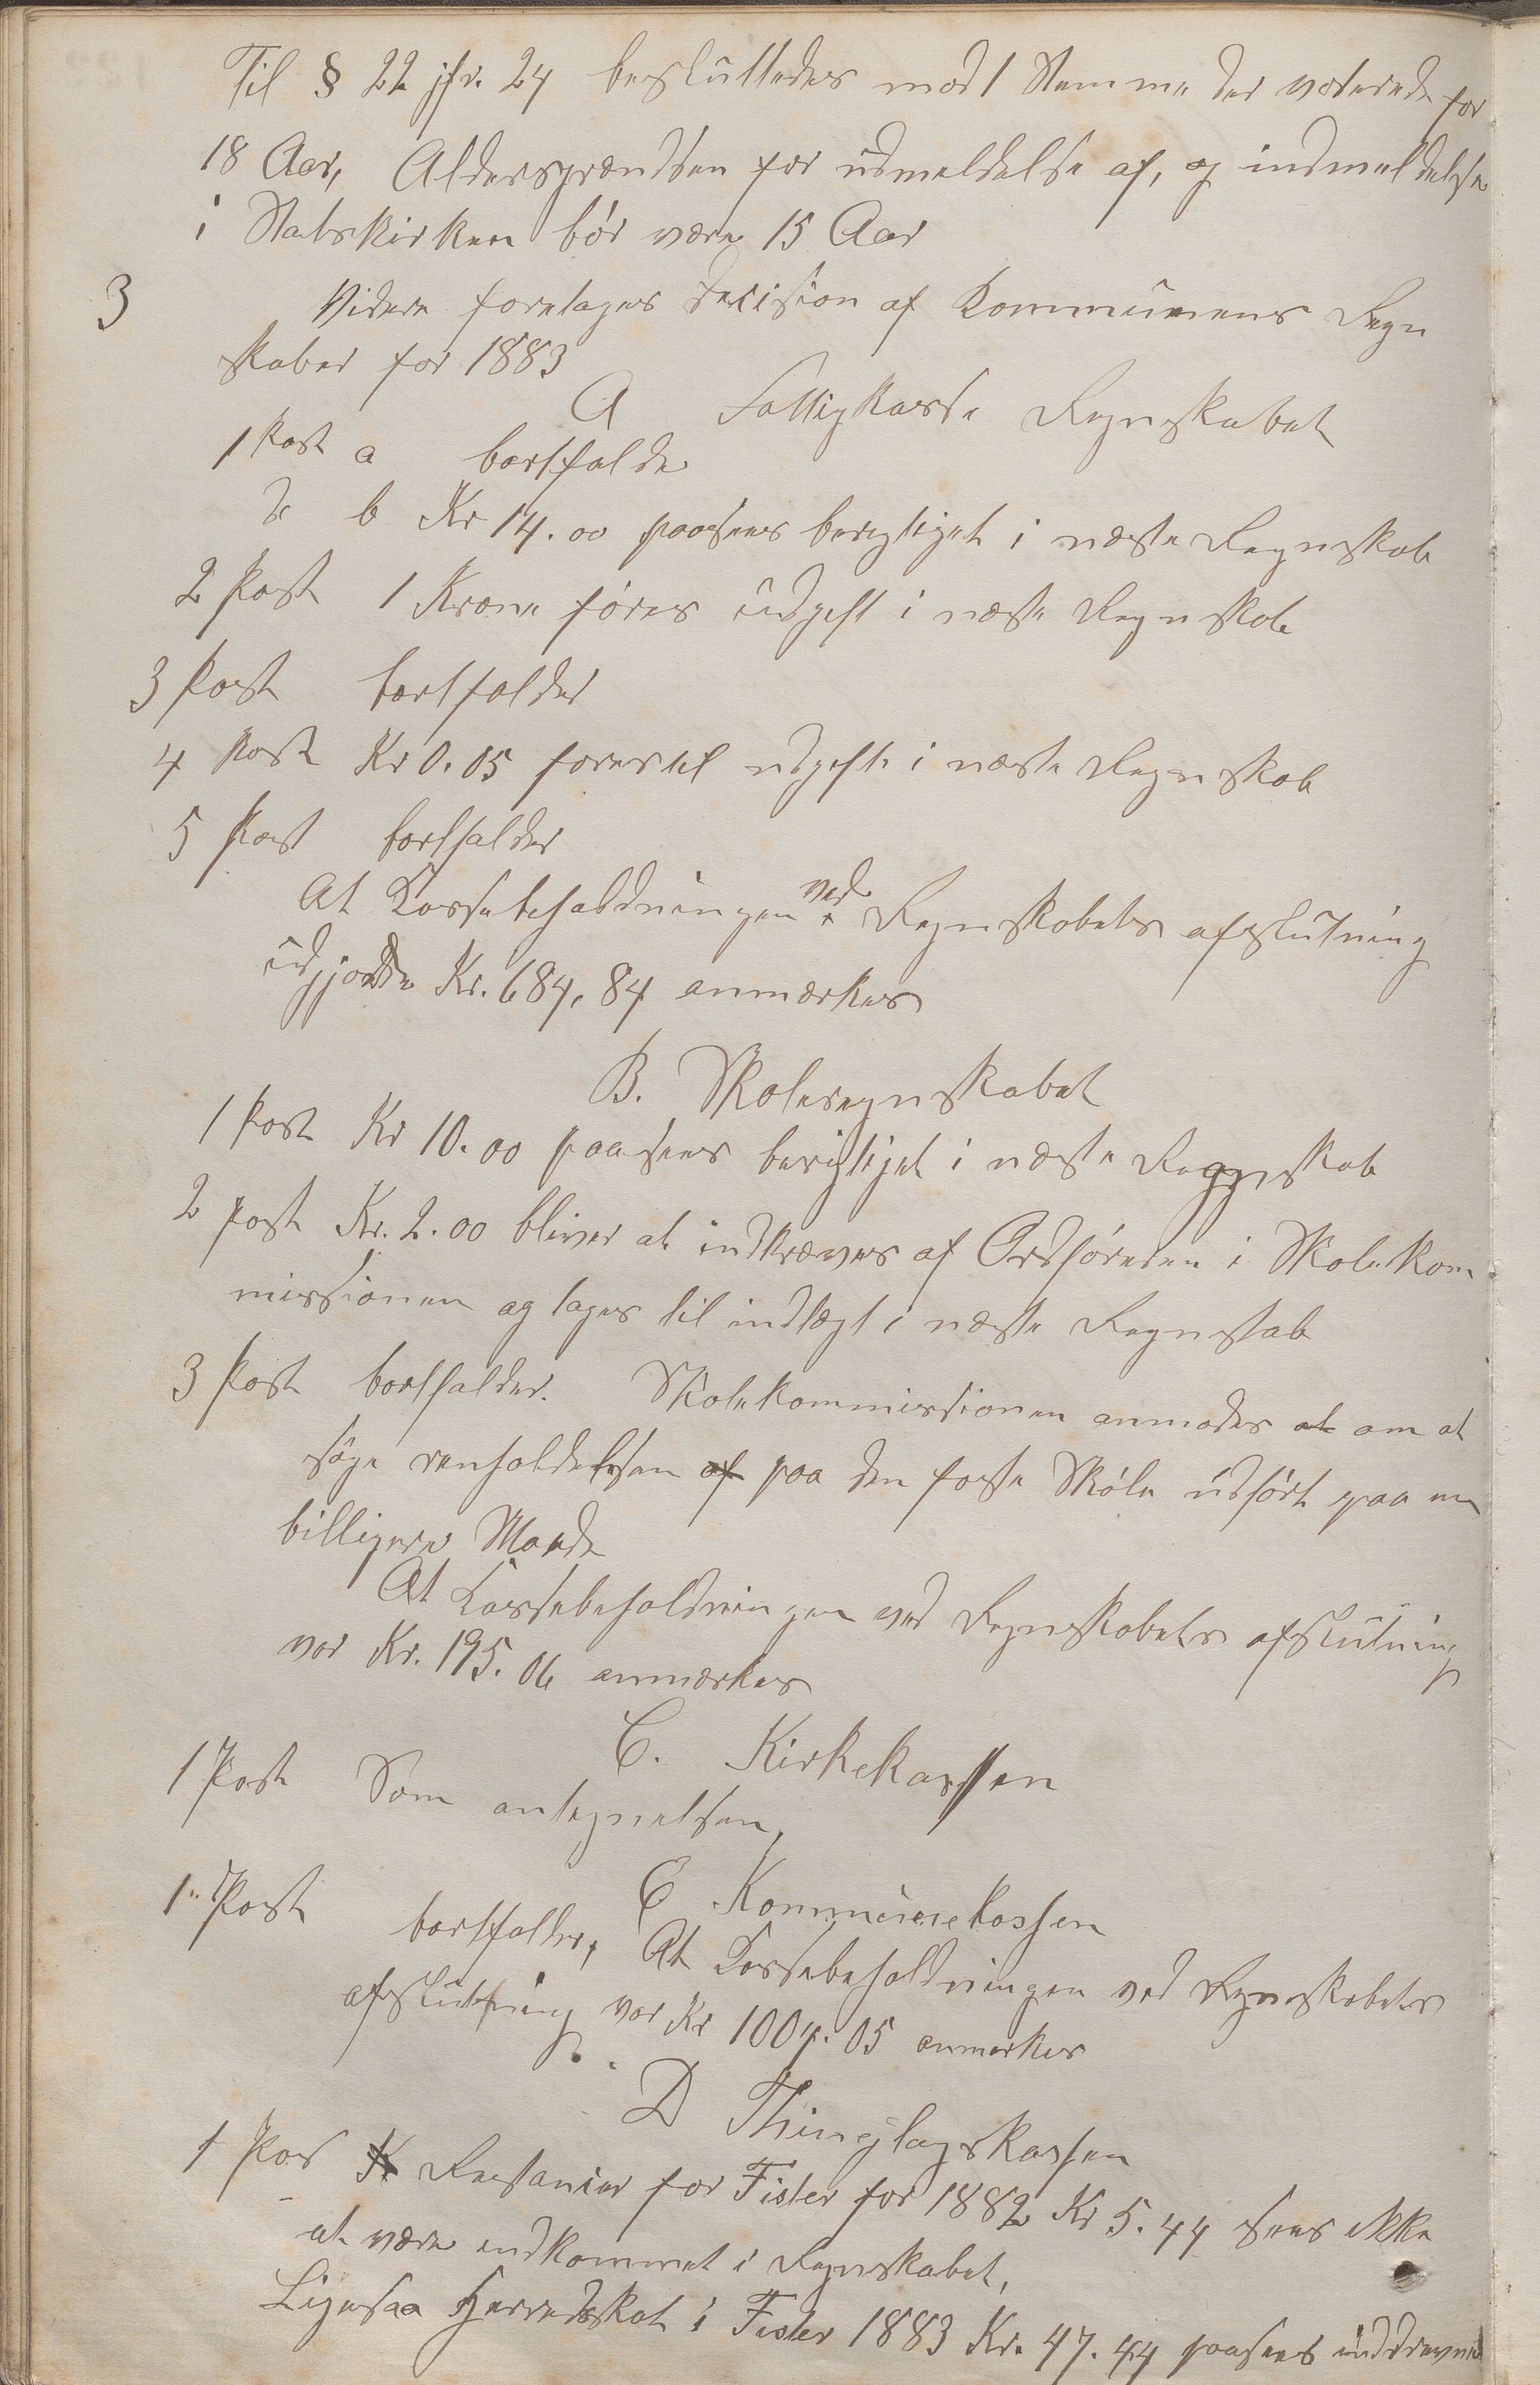 Til § 22 jfr. 24 besluttedes mod 1 Stemme der voterede for
18 Aar, Aldersgrændsen for udmeldelse af, og indmeldelse
i Statskirken bør være 15 Aar
3 Videre foretages Decision af Kommunens Regn
skaber for 1883
A Fattigkasse Regnskabet
1 Post a bortfalde
b Kr 14.00 paasees berigtiget i næste Regnskab
2 Post 1 Krone føres udgift i næste Regnskab
3 Post bortfalder
4 Post Kr 0.05 føres til udgift i næste Regnskab
5 Post bortfalder
At Kassebeholdningen ved Regnskabets afslutning
udgjorde Kr. 684,84 anmærkes
B. Skoleregnskabet
1 Post Kr 10.00 paasees berigtiget i næste Regnskab
2 Post Kr. 2.00 bliver at indkræves af Ordføreren i Skolekom
missionen og tages til indtægt i næste Regnskab
3 Post bortfalder. Skolekommissionen anmodes at om at
søge renholdelsen af paa den faste Skole udført paa en
billigere Maade
At Kassebeholdningen ved Regnskabets afslutning
var Kr. 195.06 anmærkes
C. Kirkekassen
1 Post Som antegnelsen,
C Kommunekassen
1 Post bortfalder, At Kassebeholdningen ved Regnskabets
afslutning var Kr 1004.05 anmærkes
D Thinglagskassen
1 Pos Restancer for Fister for 1882 Kr 5.44 sees ikke
at være indkommet i Regnskabet,
Ligesaa Herredskat i Fister 1883 Kr. 47.44 paasees inddrevne